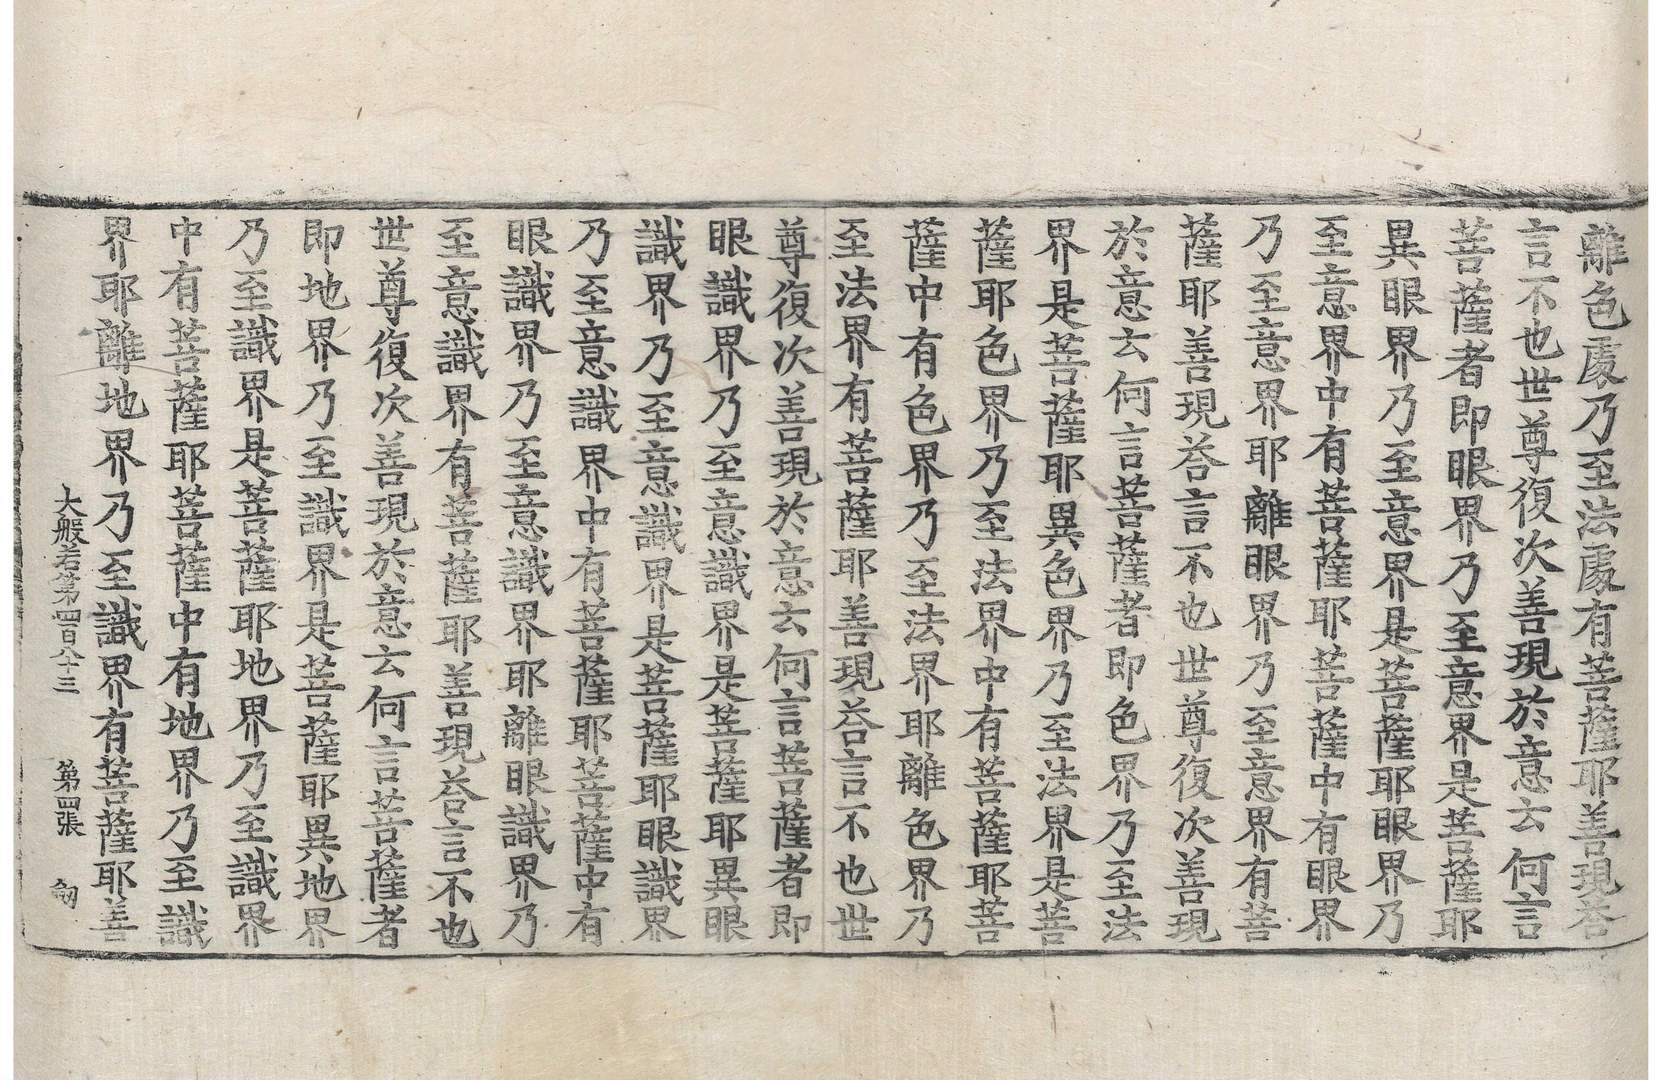 離色處乃至法處有菩薩耶善現荅
言不也世尊復次善現於意云何言
菩薩者即眼界乃至意界是菩薩耶
異眼界乃至意界是菩薩耶眼界乃
至意界中有菩薩耶菩薩中有眼界
乃至意界耶離眼界乃至意界有菩
薩耶善現荅言不也世尊復次善現
於意云何言菩薩者即色界乃至法
界是菩薩耶異色界乃至法界是菩
薩耶色界乃至法界中有菩薩耶菩
薩中有色界乃至法界耶離色界乃
至法界有菩薩耶善現荅言不也世
尊復次善現於意云何言菩薩者即
眼識界乃至意識界是菩薩耶異眼
識界乃至意識界是菩薩耶眼識界
乃至意識界中有菩薩耶菩薩中有
眼識界乃至意識界耶離眼識界乃
至意識界有菩薩耶善現荅言不也
世尊復次善現於意云何言菩薩者
即地界乃至識界是菩薩耶異地界
乃至識界是菩薩耶地界乃至識界
中有菩薩耶菩薩中有地界乃至識
界耶離地界乃至識界有菩薩耶善
大般若第四百八十三 第四張 劒